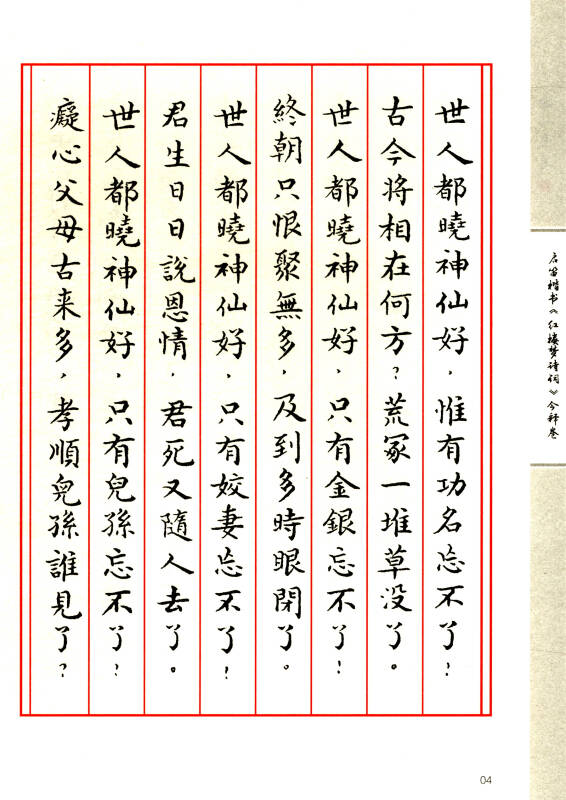 世人都曉神仙好，惟有功名忘不了！
古今將相在何方？荒冢一堆草没了。
世人都曉神仙好，只有金銀忘不了！
終朝只恨聚無多，及到多時眼閉了。
世人都曉神仙好，只有姣妻忘不了！
君生日日說恩情，君死又隨人去了。
世人都曉神仙好，只有兒孫忘不了！
癡心父母古来多，孝順兒孫誰見了？
启笛楷书《红楼梦诗词》今释卷
04